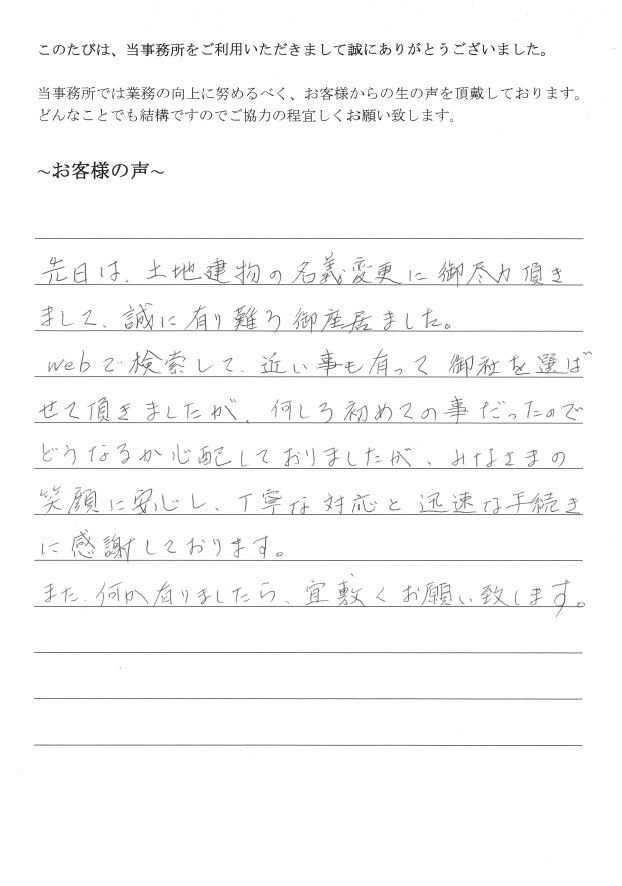 このたびは、当事務所をご利用いただきまして誠にありがとうございました。
当事務所では業務の向上に努めるべく、お客様からの生の声を頂戴しております。
どんなことでも結構ですのでご協力の程宜しくお願い致します。
~お客様の声~
先日は、土地建物の名義変更に御尽力頂き
まして、誠に有り難う御座居ました。
webで検索して、近い事も有って 御社を選ば
せて頂きましたが、何しろ初めての事だったので
どうなるか心配しておりましたが、みなさまの
笑顔に安じし、丁寧な対応と迅速な手続き
に感謝しております。
また、何か有りましたら、宜敷くお願い致します。